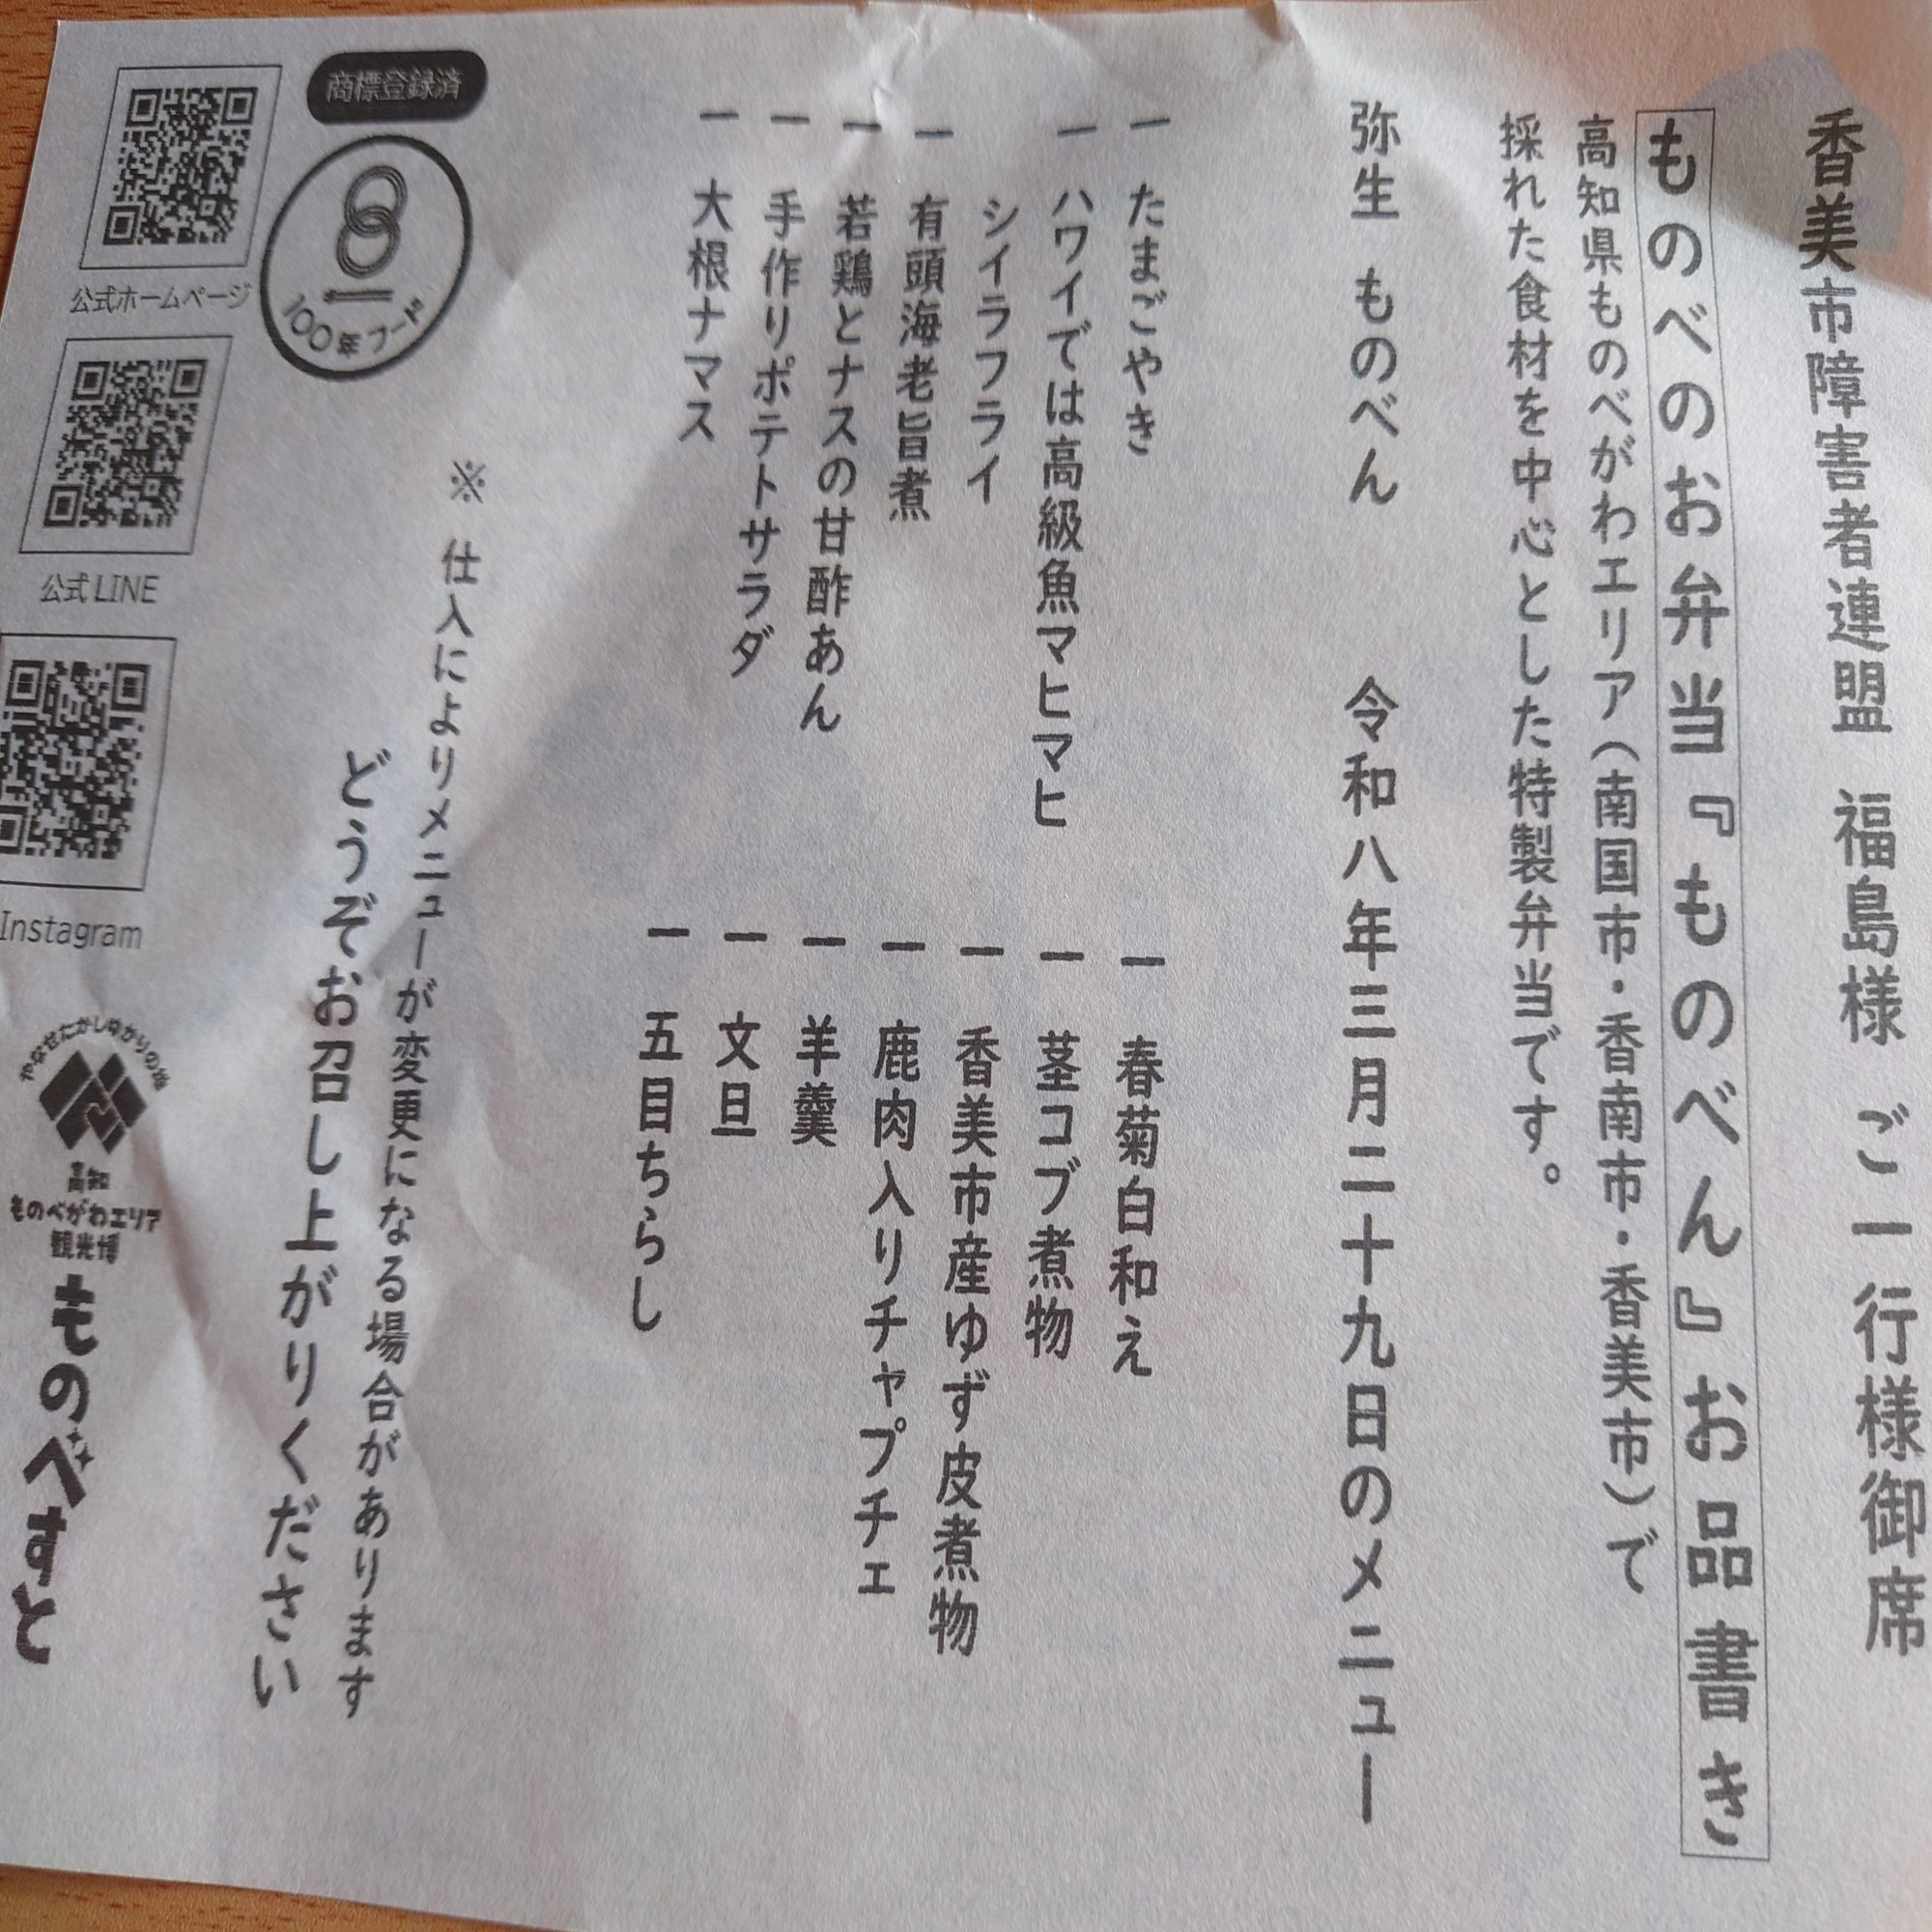 香美市障害者連盟 福島様 ご一行様御席
ものべのお弁当『ものべん』お品書き
高知県ものべがわエリア(南国市・香南市・香美市)で
採れた食材を中心とした特製弁当です。
弥生 ものべん 令和八年三月二十九日のメニュー
一 たまごやき
一 ハワイでは高級魚マヒマヒ
シイラフライ
一 有頭海老旨煮
一 若鶏とナスの甘酢あん
一 手作りポテトサラダ
一 大根ナマス
一 春菊白和え
一 茎コブ煮物
一 香美市産ゆず皮煮物
一 鹿肉入りチャプチェ
一 羊羹
一 文旦
一 五目ちらし
※ 仕入によりメニューが変更になる場合があります
どうぞお召し上がりください
商標登録済
100年フード
公式ホームページ
公式LINE
Instagram
やなせたかしゆかりの地
高知
ものべがわエリア
観光博
ものべすと